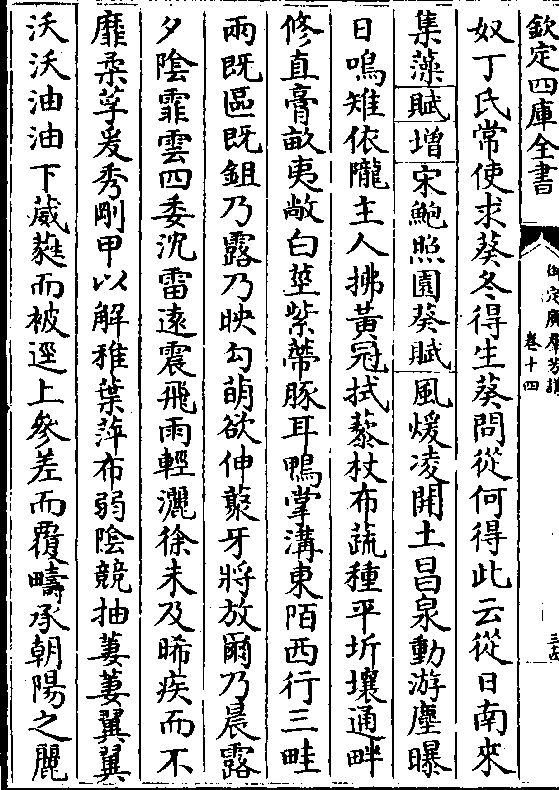 欽定四庫全書
御定廣羣芳譜
卷十四
奴丁氏常使求葵冬得生葵問從何得此云從日南來
集藻賦增宋鮑照園葵賦風煖凌開土昌泉動游塵曝
日鳴雉依隴主人拂黃冠拭藜杖布蔬種平圻壤通畔
修直膏畝夷敞白莖紫蔕豚耳鴨掌溝東陌西行三畦
兩既區既鉏乃露乃映勾萌欲伸藂牙將放爾乃晨露
夕陰霏雲四委沈雷遠震飛雨輕灑徐未及晞疾而不
靡柔莩爰秀剛甲以解稚葉萍布弱陰競抽萋萋翼翼
沃沃油油下葳蕤而被逕上參差而覆疇承朝陽之麗